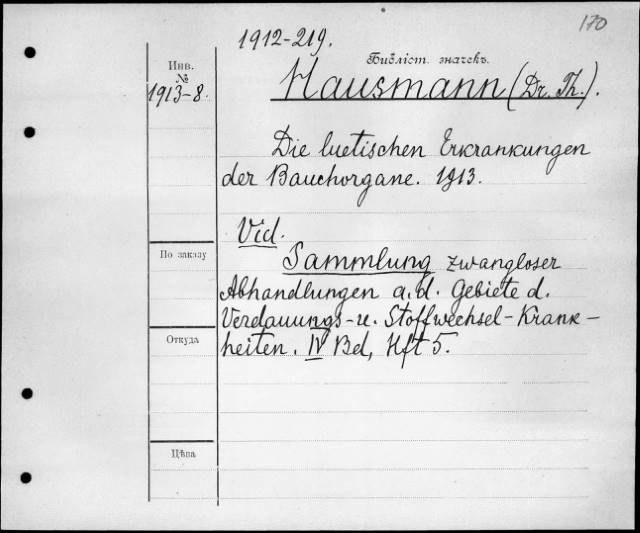 170
1912-219.
Библіот. значекъ.
Инв.
№
1913-8.
Hausmann (Dr. Th.).
Die luetischen Erkrankungen
der Bauchorgane. 1913.
Vid.
Sammlung zwangloser
По заказу
Abhandlungen a. d. Gebiete d.
Verdauungs- u. Stoffwechsel-Krank-
Откуда
heiten. IV Bd, Hft 5.
Цѣна